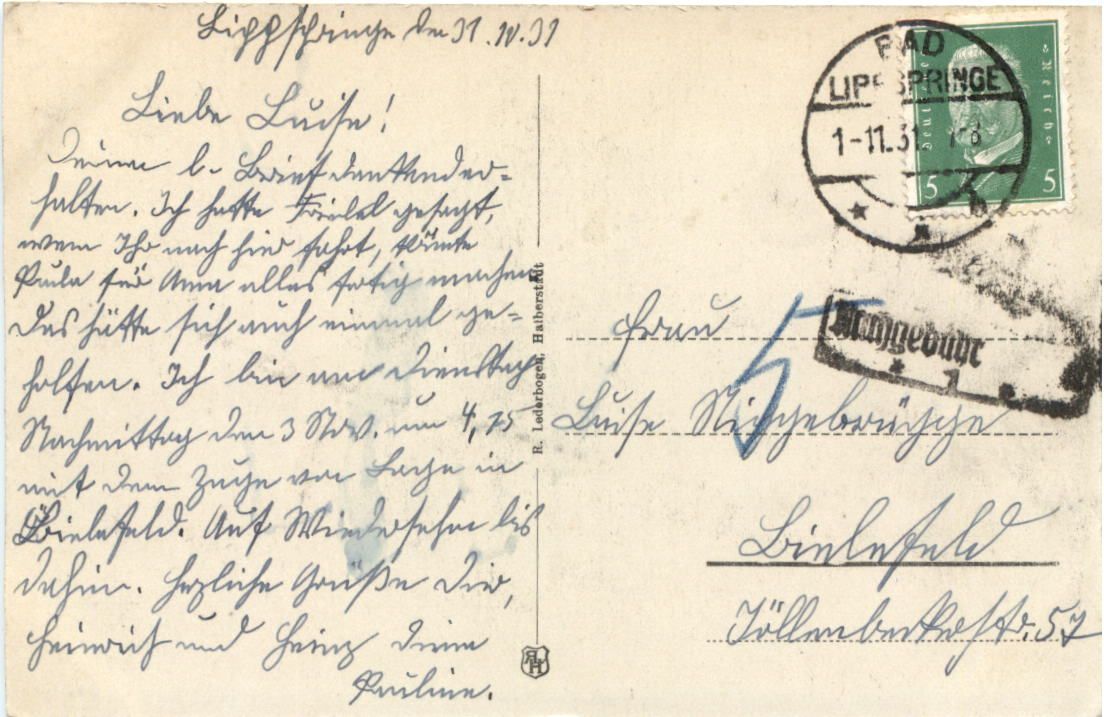 Lippspringe den 31.10.31
Liebe Luise!
Deinen l. Brief dankend er-
halten. Ich hatte Friedel gesagt,
wenn Ihr nach hier fahrt, könnte
Paula für Anna alles fertig machen
Das hätte sich auch einmal ge-
holfen. Ich bin am Dienstag
Nachmittag den 3 Nov. um 4,15
mit dem Zuge von Lage in
Bielefeld. Auf Wiedersehn bis
dahin. Herzliche Grüße Dir,
Heinrich und Heinz Deine
Pauline.
R. Lederbogen, Halberstadt
RLH
BAD
LIPPSPRINGE
1-11.31. 7-8
b
Deutsches Reich
5 5
Nachgebühr
5
Frau
Luise Niggebrügge
Bielefeld
Jöllenbeckerstr. 57